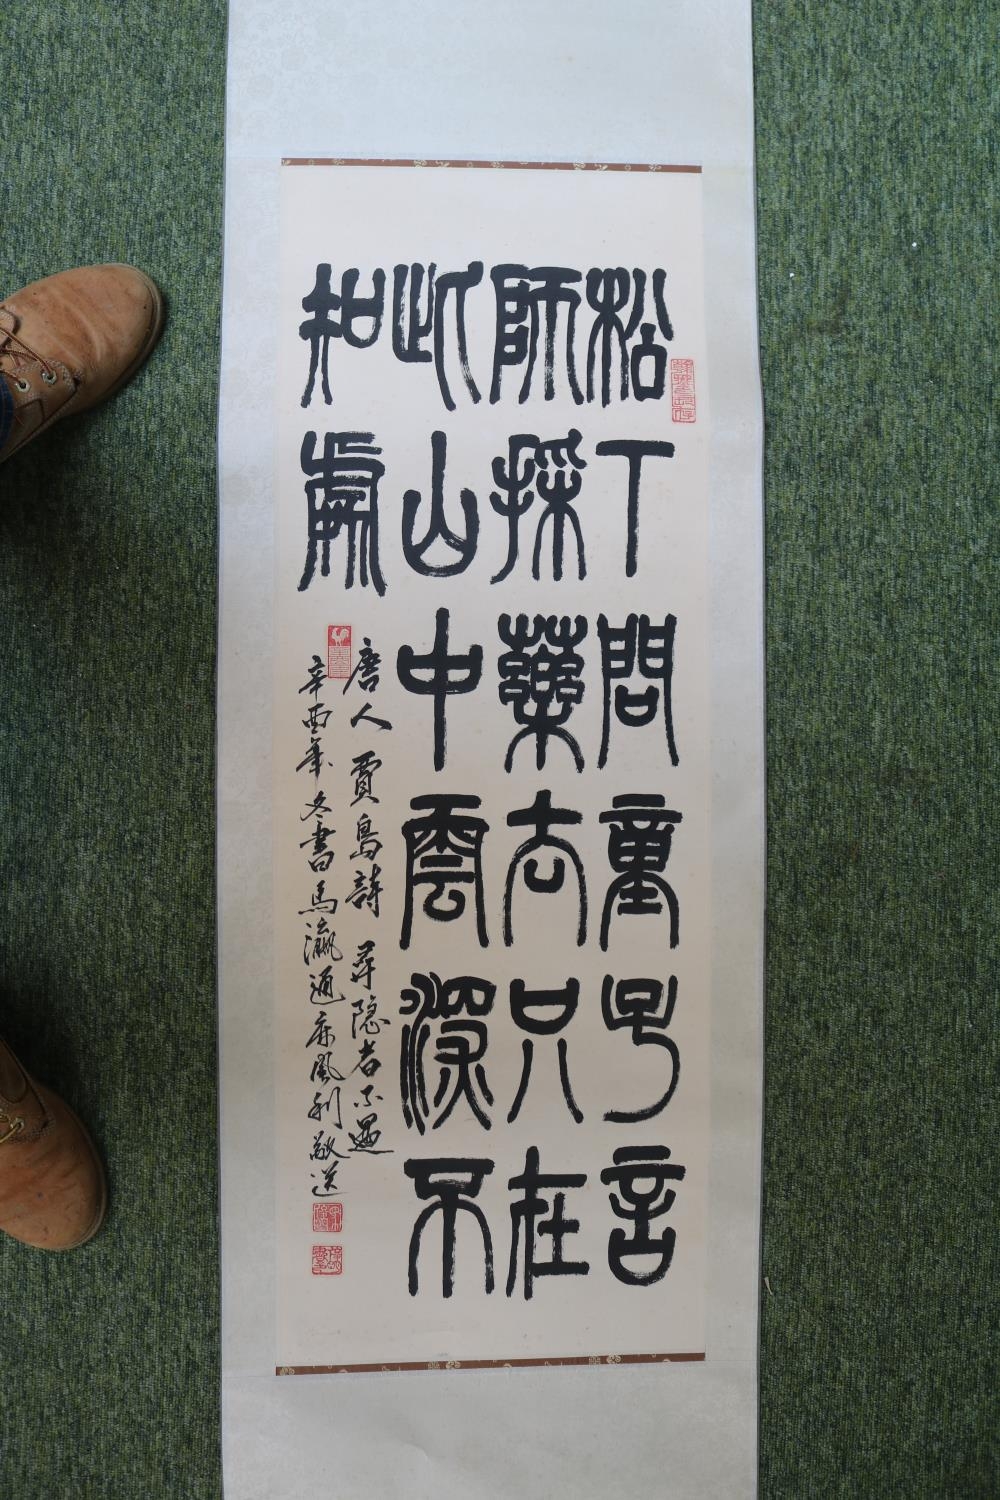 松下問童子言
師採藥去只在
此山中雲深不
知處
唐人賈島詩 尋隐者不遇
辛酉年冬書馬瀛通麻風利敬送